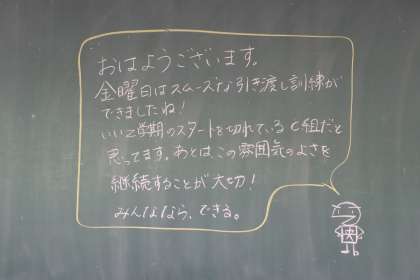 おはようございます。
金曜日はスムーズな引き渡し訓練が
できましたね！
いい2学期のスタートを切れているC組だと
思ってます。あとはこの雰囲気のよさを
継続することが大切！
みんななら、できる。